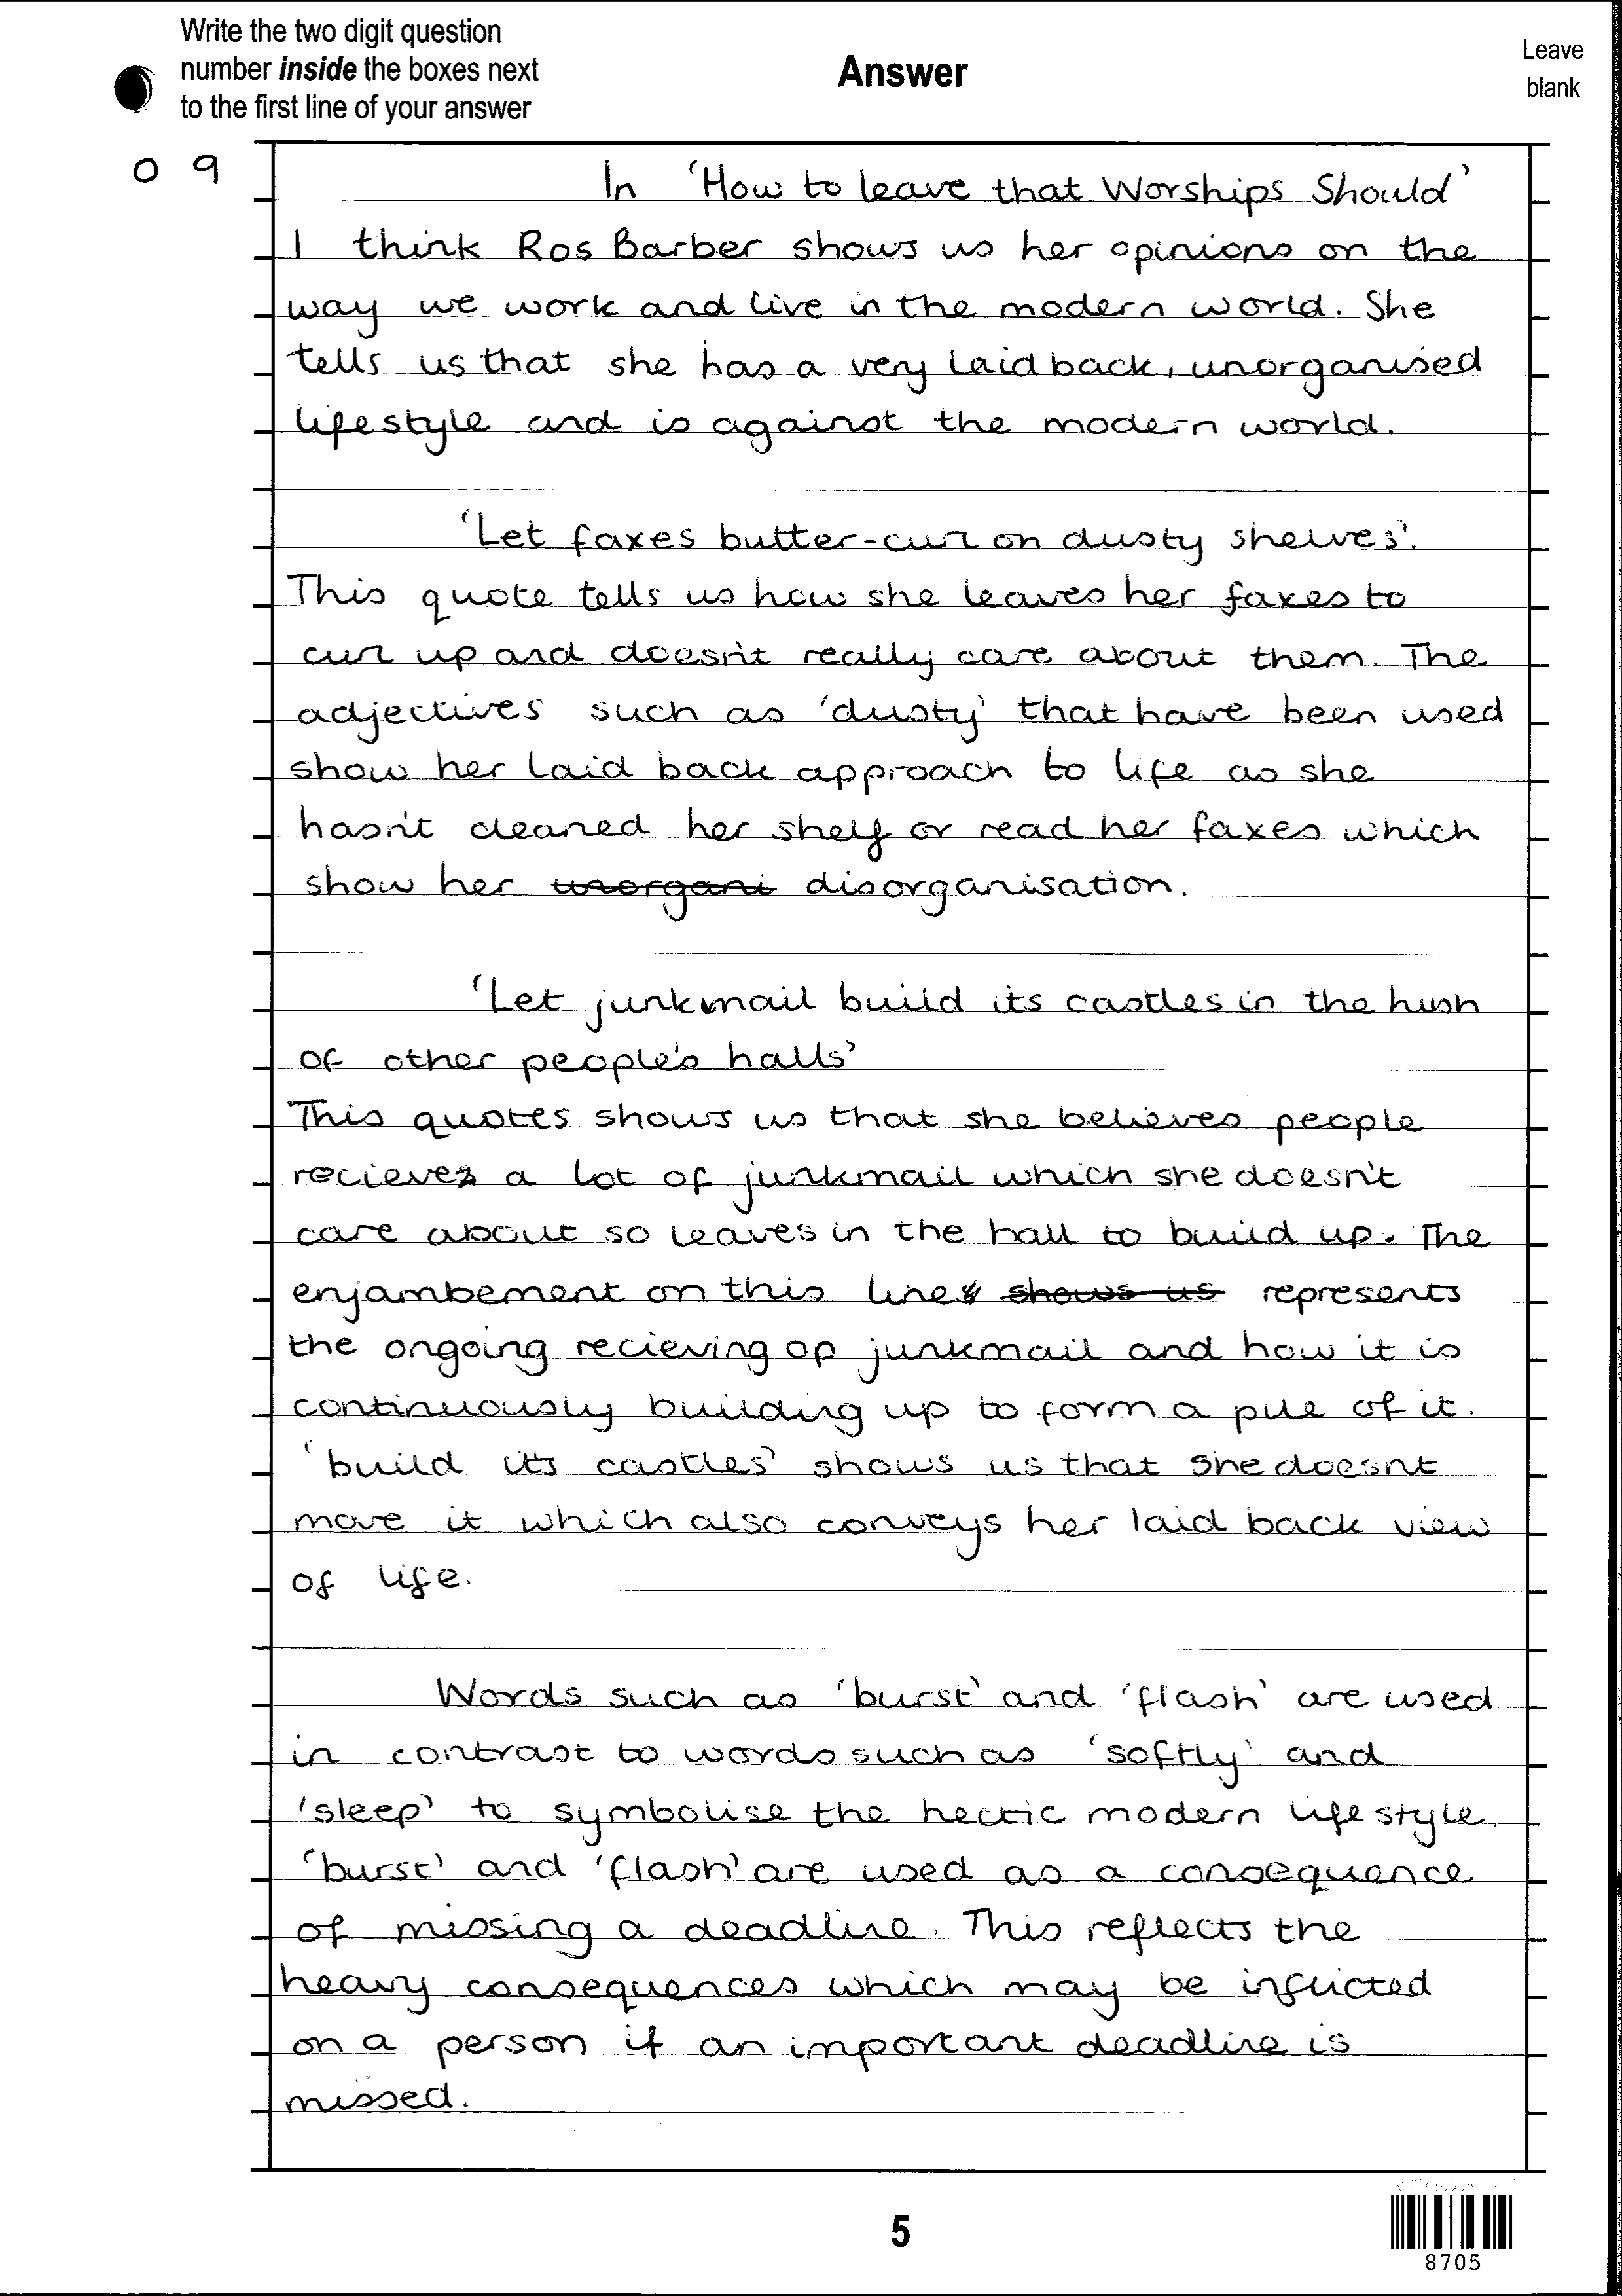 Write the two digit question
number inside the boxes next
to the first line of your answer
Answer
Leave
blank
0 9
In 'How to leave that Worships Should'
I think Ros Barber shows us her opinions on the
way we work and live in the modern world. She
tells us that she has a very laid back, unorganised
lifestyle and is against the modern world.
'Let faxes butter-curl on dusty shelves'.
This quote tells us how she leaves her faxes to
curl up and doesn't really care about them. The
adjectives such as 'dusty' that have been used
show her laid back approach to life as she
hasn't cleaned her shelf or read her faxes which
show her unorgani disorganisation.
'Let junkmail build its castles in the hush
of other people's halls'
This quotes shows us that she believes people
recieves a lot of junkmail which she doesn't
care about so leaves in the hall to build up. The
enjambement on this lines shows us represents
the ongoing recieving of junkmail and how it is
continuously building up to form a pile of it.
'build its castles' shows us that she doesnt
move it which also conveys her laid back view
of life.
Words such as 'burst' and 'flash' are used
in contrast to words such as 'softly' and
'sleep' to symbolise the hectic modern lifestyle.
'burst' and 'flash' are used as a consequence
of missing a deadline. This reflects the
heavy consequences which may be inflicted
on a person if an important deadline is
missed.
5
8705